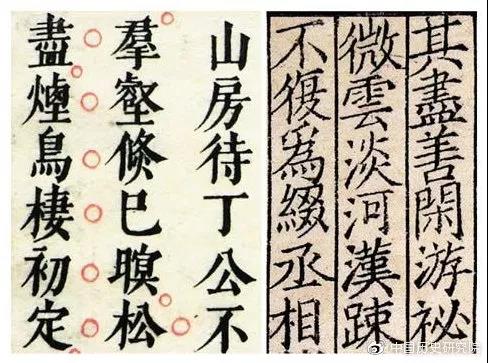 山房待丁公不
羣壑倐巳暝松
盡煙鳥棲初定
其盡善閑游祕
微雲淡河漢踈
不復爲綴丞相
@中国历史研究院